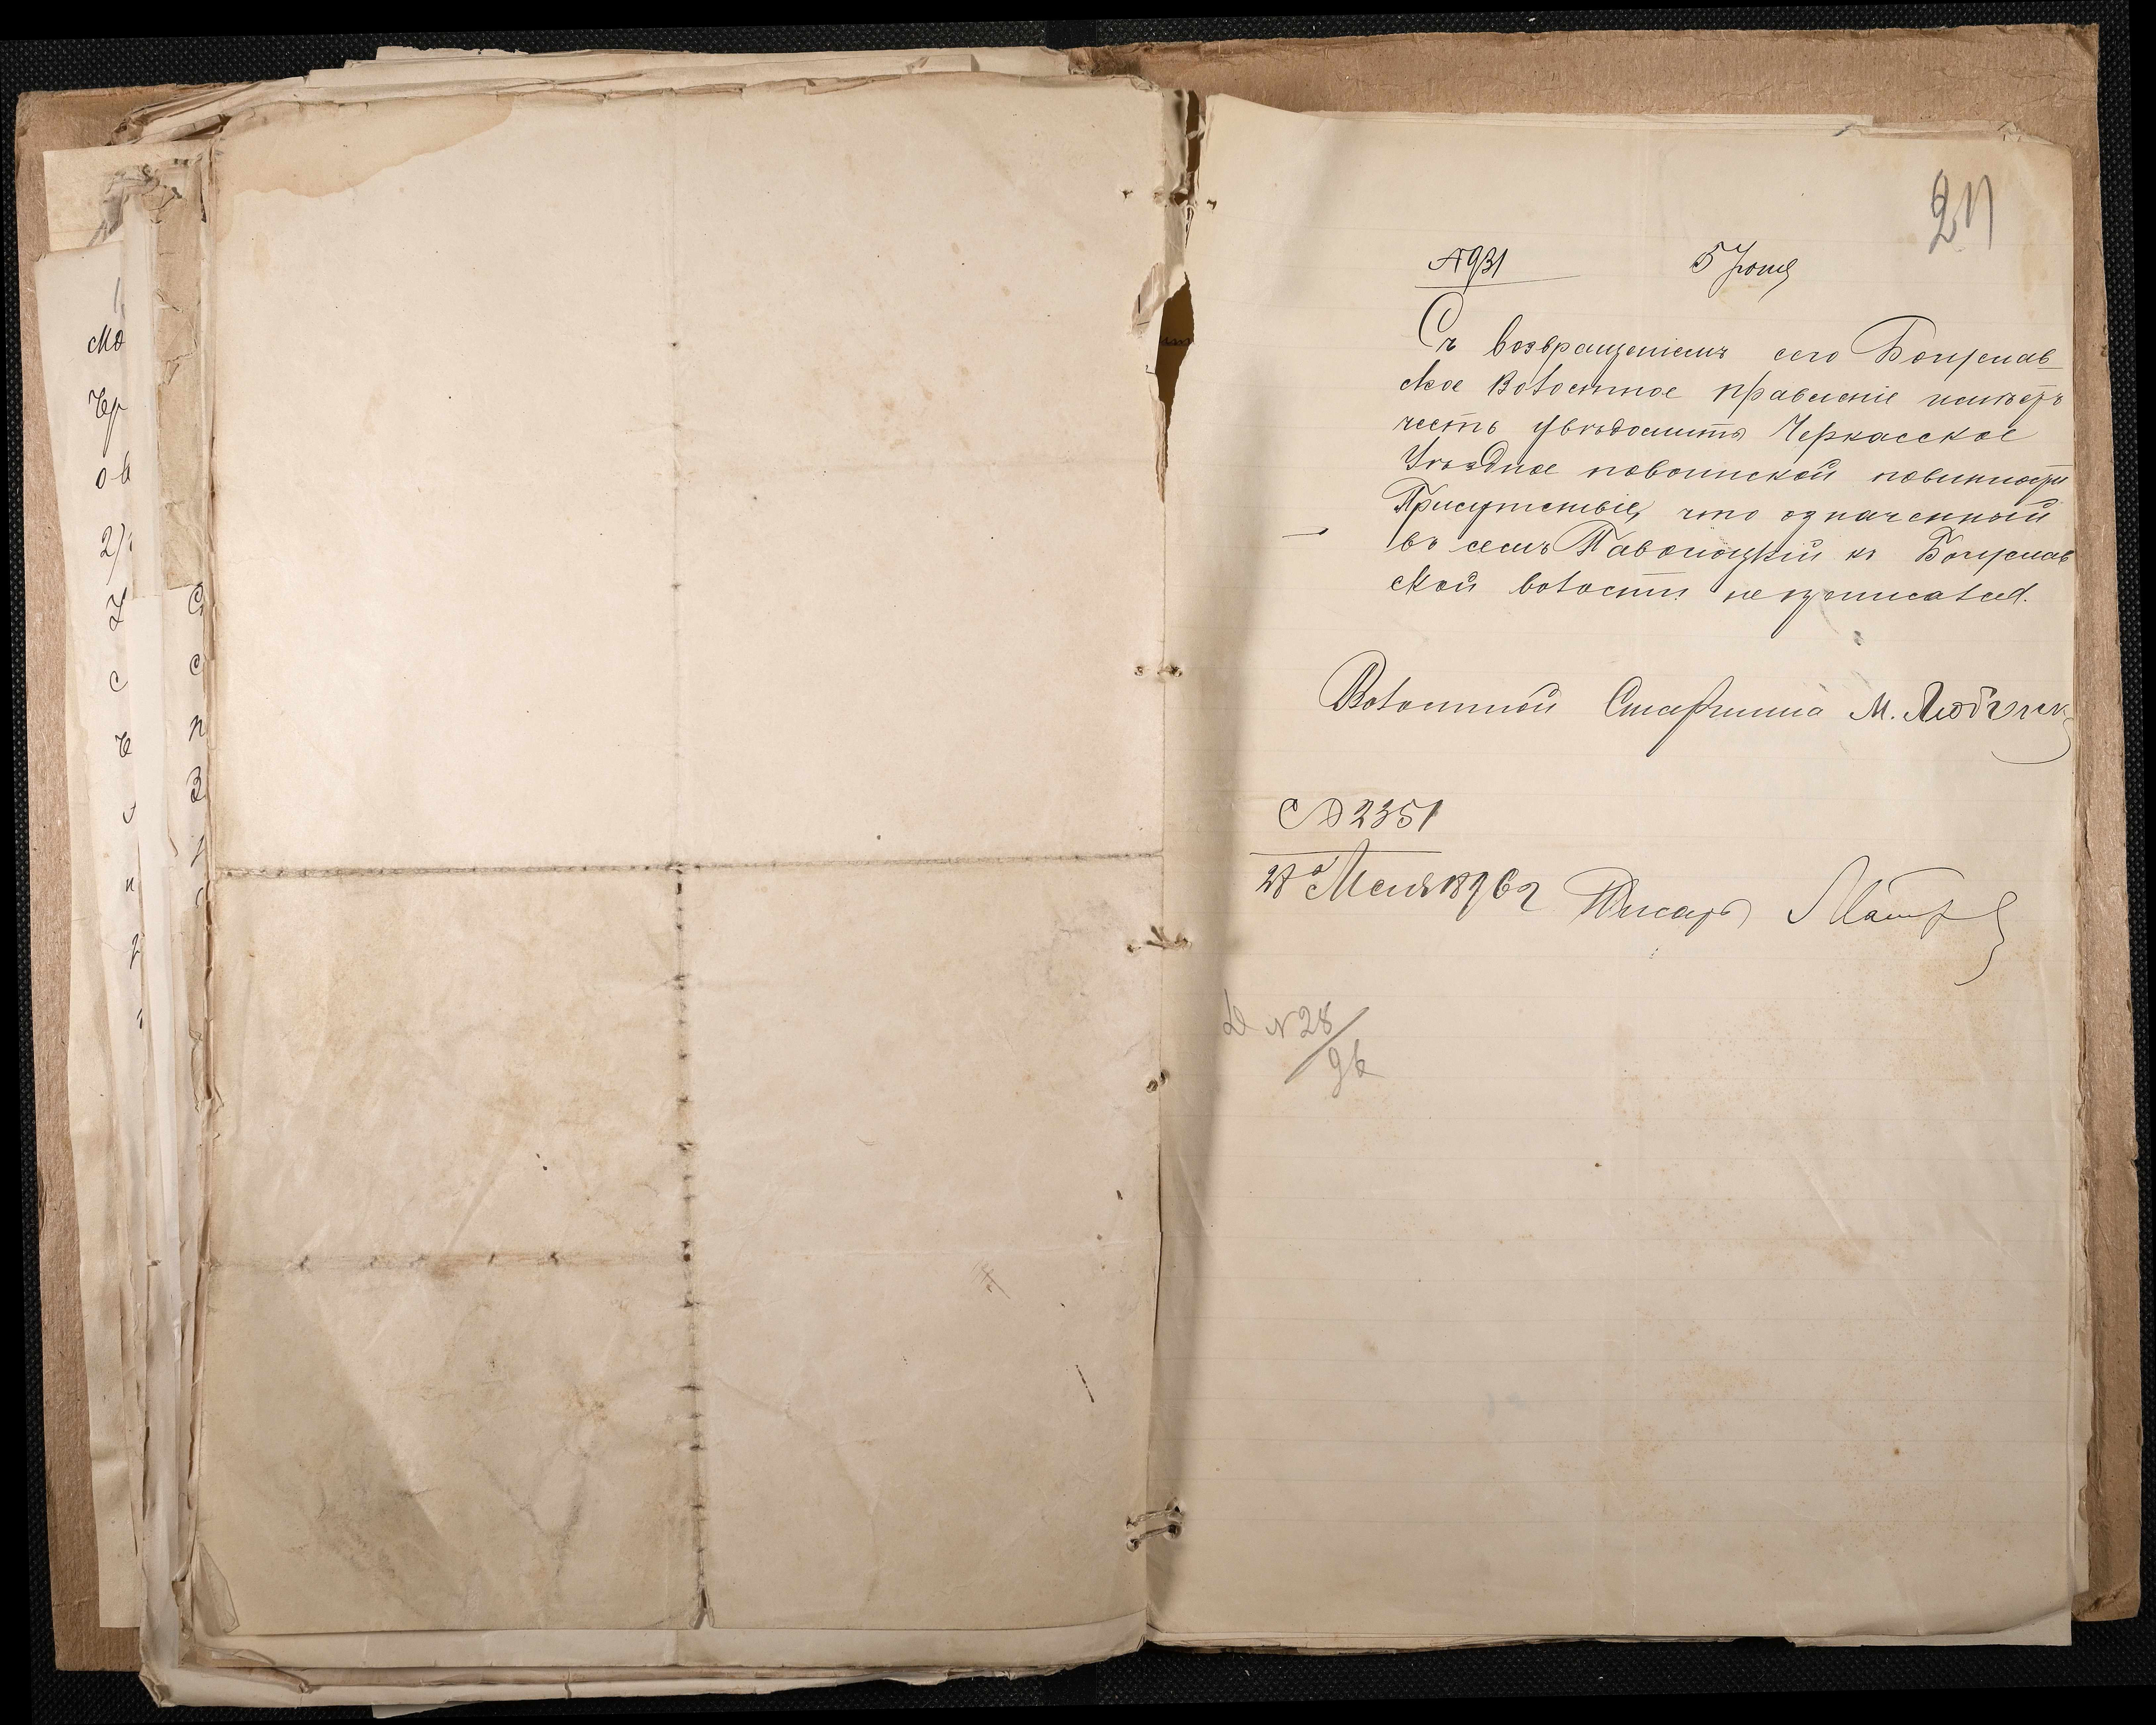 2
№ 931 5 Іюня
Съ возвращеніемъ сего Богуслав
ское Волостное правленіе имѣетъ
честь увѣдомить Черкасское
Уѣздное по воинской повинности
Присутствіе, что означенный
въ семъ Паволоцкій къ Богуслав
ской волости не приписался.
Волостной Старшина М.
№ 2351
Мая 1896 г Писарь
№ 28/96